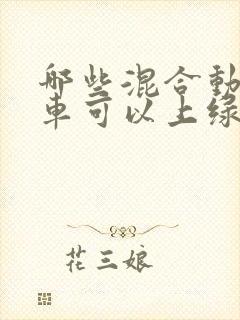 哪些混合動
車可以上綠
花三娘